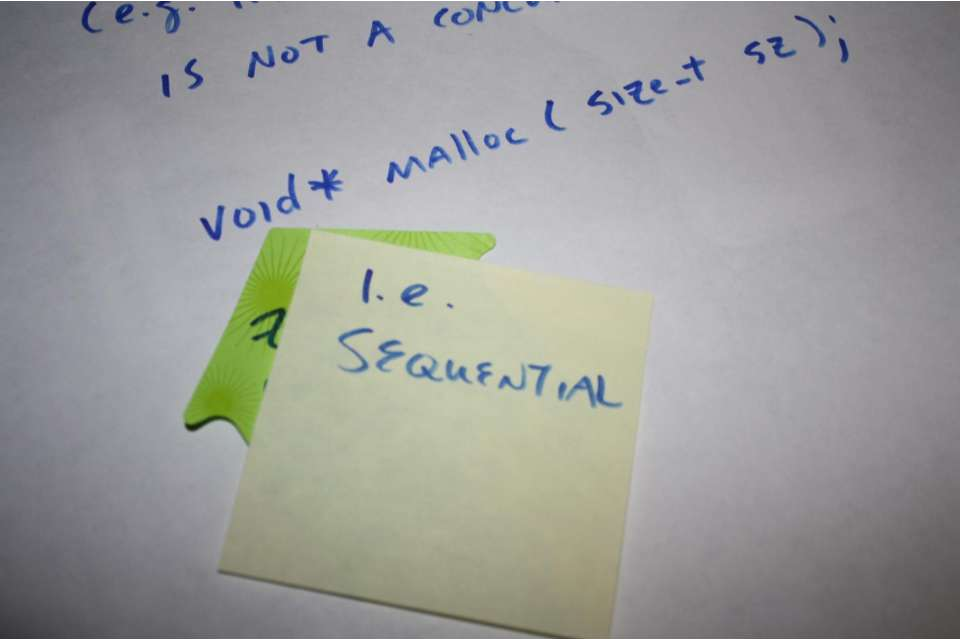 (e.g.
IS NOT A
void* malloc( size_t sz);
I.e.
SEQUENTIAL